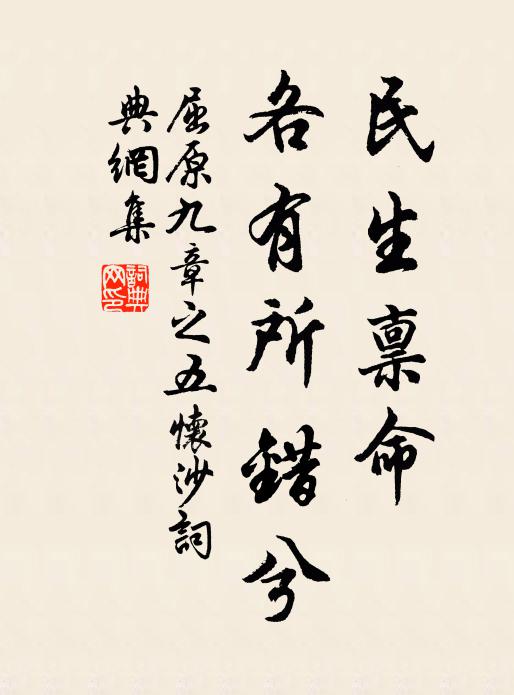 民生禀命
各有所錯兮
屈原九章之五懷沙詞
典網集
詞典
网印